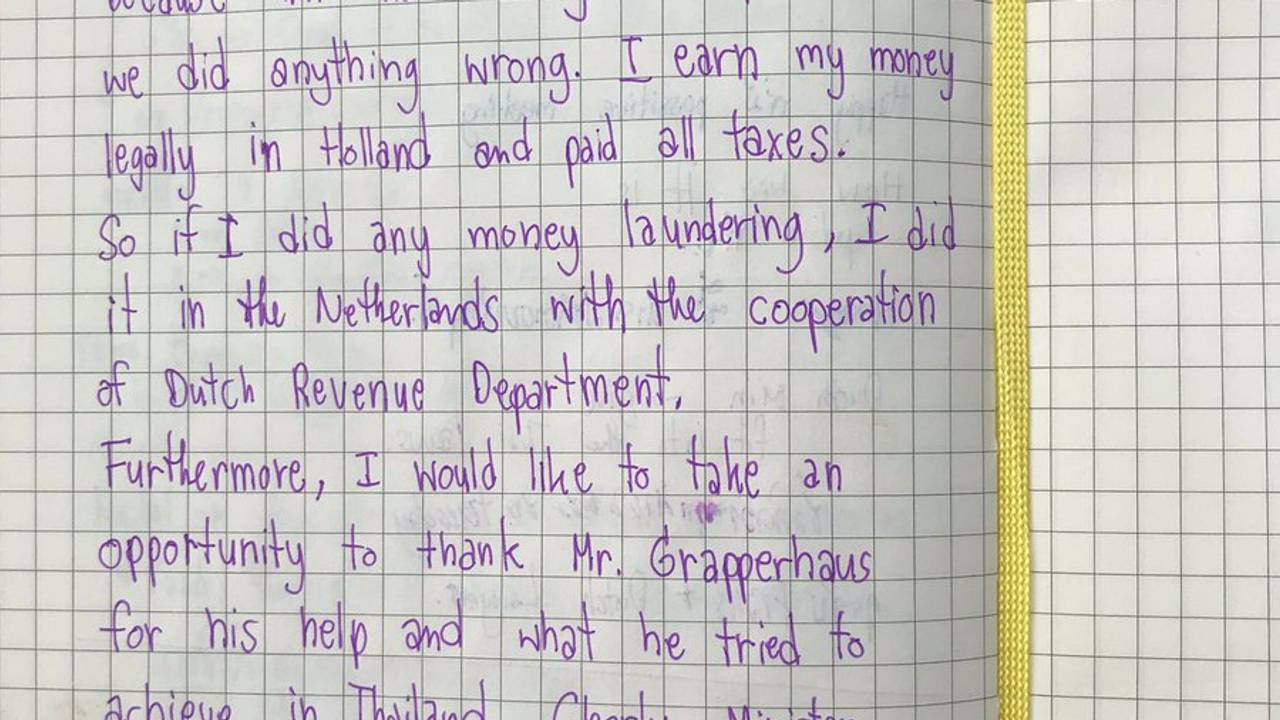 we did anything wrong. I earn my money
legally in Holland and paid all taxes.
So if I did any money laundering, I did
it in the Netherlands with the cooperation
of Dutch Revenue Department.
Furthermore, I would like to take an
opportunity to thank Mr. Grapperhaus
for his help and what he tried to
achieve in Thailand. Clearly Minister